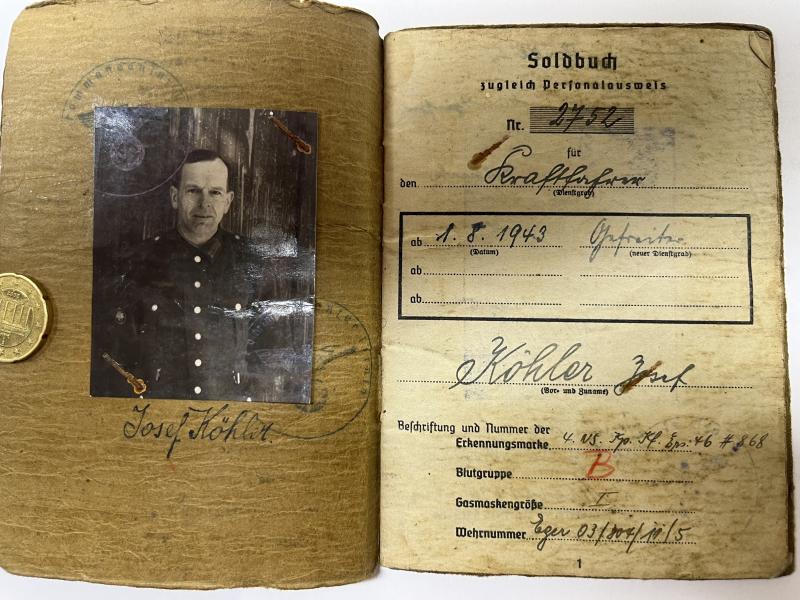 Josef Köhler.
Soldbuch
zugleich Personalausweis
Nr. 2752
für
den Kraftfahrer
(Dienstgrad)
ab 1.8.1943 Gefreiter
(Datum) (neuer Dienstgrad)
ab
ab
Köhler Josef
(Vor- und Zuname)
Beschriftung und Nummer der
Erkennungsmarke 4. Kp. Kf. Ers. 46 # 868
Blutgruppe B
Gasmaskengröße I
Wehrnummer Eger 03/ /5
1